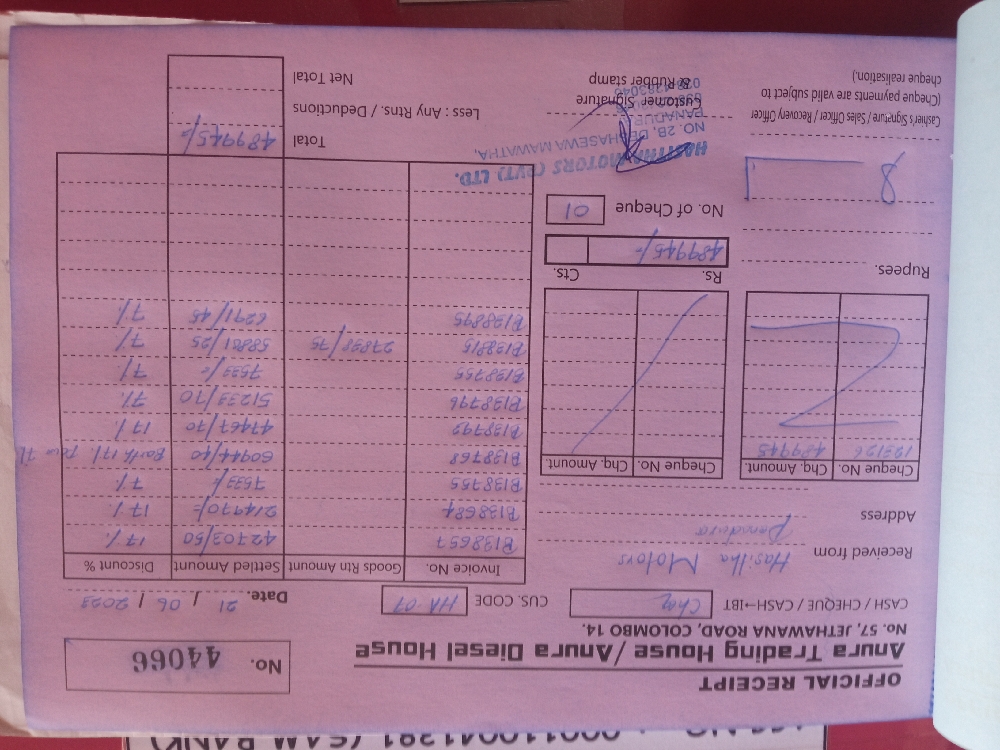 OFFICIAL RECEIPT
Anura Trading House/Anura Diesel House
No. 57, JETHAWANA ROAD, COLOMBO 14.
No. 44066
CASH / CHEQUE / CASH→IBT Chq
CUS. CODE HA-07
Date. 21 / 06 / 2023
Received from Hasitha Motors
Address Panadura
Cheque No. Chq. Amount Cheque No. Chq. Amount
123126 489945
Rupees.
Rs. Cts.
489945/-
No. of Cheque 01
Invoice No. Goods Rtn Amount Settled Amount Discount %
B138657 42703/50 17%
B138684 214970/- 17%
B138755 7533/- 7%
B138768 60944/40 17%
B138792 47467/70 17%
B138796 51233/70 7%
B138755 7533/- 7%
B138815 27898/75 58881/25 7%
B138895 6291/45 7%
Total 489945/-
Less: Any Rtns. / Deductions
Net Total
HASITHA MOTORS (PVT) LTD.
NO. 2B, DEBHASEWA MAWATHA,
PANADURA
Customer Signature
& Rubber stamp
Casher's Signature / Sales Officer / Recovery Officer
(Cheque payments are valid subject to
cheque realisation.)